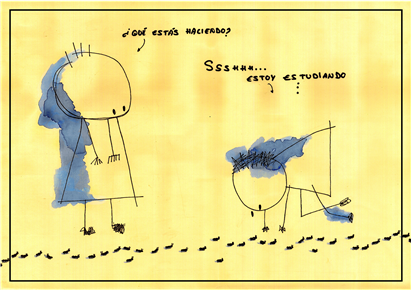 ¿QUÉ ESTÁS HACIENDO?
SSSHHH...
ESTOY ESTUDIANDO